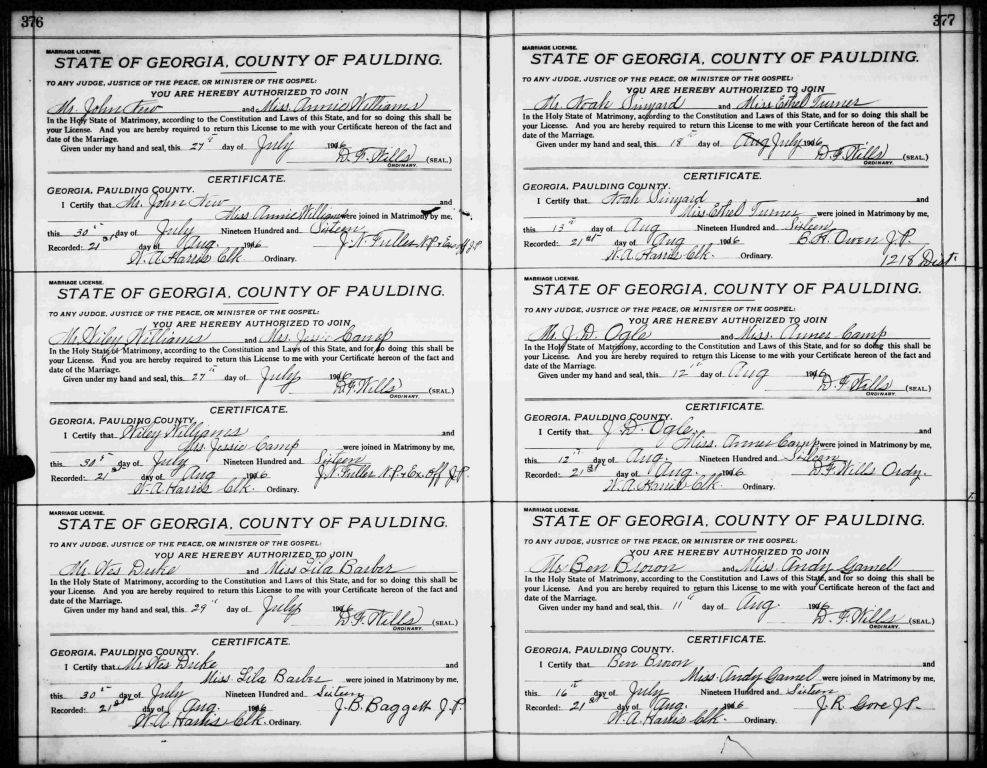 376
MARRIAGE LICENSE.
STATE OF GEORGIA, COUNTY OF PAULDING.
TO ANY JUDGE, JUSTICE OF THE PEACE, OR MINISTER OF THE GOSPEL:
YOU ARE HEREBY AUTHORIZED TO JOIN
Mr. John Few and Miss. Annie Williams
In the Holy State of Matrimony, according to the Constitution and Laws of this State, and for so doing this shall be
your License. And you are hereby required to return this License to me with your Certificate hereon of the fact and
date of the Marriage.
Given under my hand and seal, this 27th day of July 1916
D. F. Wills (SEAL.)
ORDINARY.
CERTIFICATE.
GEORGIA, PAULDING COUNTY.
I Certify that Mr. John Few and
Miss Annie Williams were joined in Matrimony by me,
this 30th day of July Nineteen Hundred and Sixteen
Recorded: 21st day of Aug. 1916 J. N. Fuller N.P. & Ex off J.P.
W. A. Harris Clk. Ordinary.
MARRIAGE LICENSE.
STATE OF GEORGIA, COUNTY OF PAULDING.
TO ANY JUDGE, JUSTICE OF THE PEACE, OR MINISTER OF THE GOSPEL:
YOU ARE HEREBY AUTHORIZED TO JOIN
Mr. Wiley Williams and Mrs. Jessie Camp
In the Holy State of Matrimony, according to the Constitution and Laws of this State, and for so doing this shall be
your License. And you are hereby required to return this License to me with your Certificate hereon of the fact and
date of the Marriage.
Given under my hand and seal, this 27th day of July 1916
D. F. Wills (SEAL.)
ORDINARY.
CERTIFICATE.
GEORGIA, PAULDING COUNTY.
I Certify that Wiley Williams and
Mrs. Jessie Camp were joined in Matrimony by me,
this 30th day of July Nineteen Hundred and Sixteen
Recorded: 21st day of Aug 1916 J. N. Fuller N.P. & Ex. Off J.P.
W. A. Harris Clk. Ordinary.
MARRIAGE LICENSE.
STATE OF GEORGIA, COUNTY OF PAULDING.
TO ANY JUDGE, JUSTICE OF THE PEACE, OR MINISTER OF THE GOSPEL:
YOU ARE HEREBY AUTHORIZED TO JOIN
Mr. Wes Duke and Miss Lila Barber
In the Holy State of Matrimony, according to the Constitution and Laws of this State, and for so doing this shall be
your License. And you are hereby required to return this License to me with your Certificate hereon of the fact and
date of the Marriage.
Given under my hand and seal, this 29th day of July 1916
D. F. Wills (SEAL.)
ORDINARY.
CERTIFICATE.
GEORGIA, PAULDING COUNTY.
I Certify that Mr Wes Duke and
Miss. Lila Barber were joined in Matrimony by me,
this 30th day of July Nineteen Hundred and Sixteen
Recorded: 21st day of Aug. 1916 J. B. Baggett J.P.
W. A. Harris Clk. Ordinary.
377
MARRIAGE LICENSE.
STATE OF GEORGIA, COUNTY OF PAULDING.
TO ANY JUDGE, JUSTICE OF THE PEACE, OR MINISTER OF THE GOSPEL:
YOU ARE HEREBY AUTHORIZED TO JOIN
Mr. Noah Sinyard and Miss Ethel Turner
In the Holy State of Matrimony, according to the Constitution and Laws of this State, and for so doing this shall be
your License. And you are hereby required to return this License to me with your Certificate hereon of the fact and
date of the Marriage.
Given under my hand and seal, this 18th day of Aug July 1916
D. F. Wills (SEAL.)
ORDINARY.
CERTIFICATE.
GEORGIA, PAULDING COUNTY.
I Certify that Noah Sinyard and
Miss. Ethel Turner were joined in Matrimony by me,
this 13th day of Aug Nineteen Hundred and Sixteen
Recorded: 21st day of Aug 1916 E. H. Owen J.P.
W. A. Harris Clk. Ordinary. 1218 Dist.
MARRIAGE LICENSE.
STATE OF GEORGIA, COUNTY OF PAULDING.
TO ANY JUDGE, JUSTICE OF THE PEACE, OR MINISTER OF THE GOSPEL:
YOU ARE HEREBY AUTHORIZED TO JOIN
Mr. J. D. Ogle and Miss. Anner Camp
In the Holy State of Matrimony, according to the Constitution and Laws of this State, and for so doing this shall be
your License. And you are hereby required to return this License to me with your Certificate hereon of the fact and
date of the Marriage.
Given under my hand and seal, this 12th day of Aug 1916
D. F. Wills (SEAL.)
ORDINARY.
CERTIFICATE.
GEORGIA, PAULDING COUNTY.
I Certify that J. D. Ogle and
Miss. Anner Camp were joined in Matrimony by me,
this 12th day of Aug. Nineteen Hundred and Sixteen
Recorded: 21st day of Aug. 1916 D. F. Wills Ordy.
W. A. Harris Clk. Ordinary.
MARRIAGE LICENSE.
STATE OF GEORGIA, COUNTY OF PAULDING.
TO ANY JUDGE, JUSTICE OF THE PEACE, OR MINISTER OF THE GOSPEL:
YOU ARE HEREBY AUTHORIZED TO JOIN
Mr Ben Brown and Miss. Andy Gamel
In the Holy State of Matrimony, according to the Constitution and Laws of this State, and for so doing this shall be
your License. And you are hereby required to return this License to me with your Certificate hereon of the fact and
date of the Marriage.
Given under my hand and seal, this 11th day of Aug. 1916
D. F. Wills (SEAL.)
ORDINARY.
CERTIFICATE.
GEORGIA, PAULDING COUNTY.
I Certify that Ben Brown and
Miss. Andy Gamel were joined in Matrimony by me,
this 16th day of July Nineteen Hundred and Sixteen
Recorded: 21st day of Aug. 1916 J. R. Gore J.P.
W. A. Harris Clk. Ordinary.